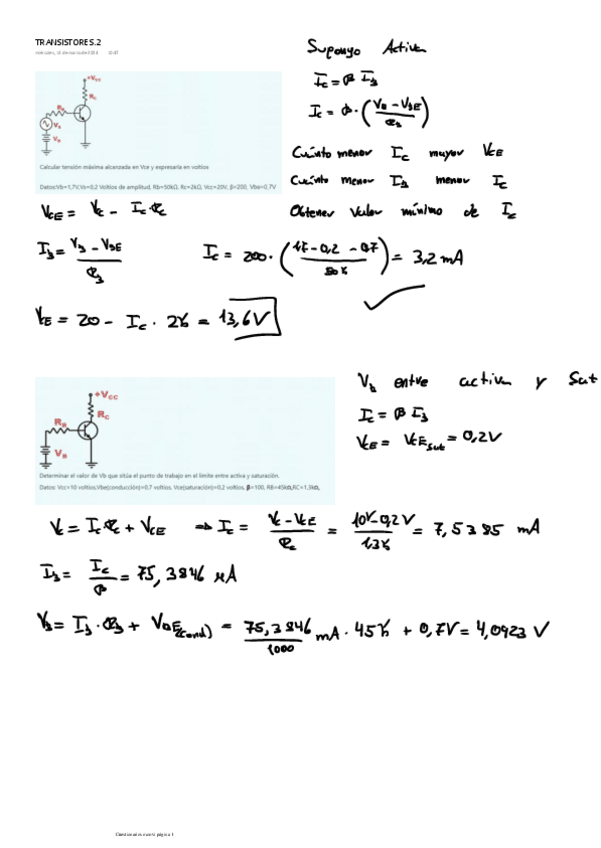 TRANSISTORES.2
Supongo Activa
Ic = β I_B
Ic = β · (V_B - V_BE / R_B)
+Vcc
Rc
RB
Vs
VB
Calcular tensión máxima alcanzada en Vce y expresarla en voltios
Datos:Vb=1,7V,Vs=0.2 Voltios de amplitud, Rb=50kΩ, Rc=2kΩ, Vcc=20V, β=200, Vbe=0,7V
Cuánto menor Ic mayor VCE
Cuánto menor I_B menor Ic
Obtener valor mínimo de Ic
VCE = Vc - Ic · Rc
I_B = V_B - V_BE / R_B
Ic = 200 · (1,7 - 0,2 - 0,7 / 50K) = 3,2 mA
VCE = 20 - Ic · 2K = 13,6V
+Vcc
Rc
RB
VB
Determinar el valor de Vb que sitúa el punto de trabajo en el límite entre activa y saturación.
Datos: Vcc=10 voltios.Vbe(conducción)=0.7 voltios. Vce(saturación)=0.2 voltios. β=100, RB=45kΩ,RC=1,3kΩ,
V_b entre activa y Sat
Ic = β I_B
VCE = VCE sat = 0,2V
Vc = Ic Rc + VCE ⇒ Ic = Vc - VCE / Rc = 10V - 0,2V / 1,3K = 7,5385 mA
I_B = Ic / β = 75,3846 μA
V_B = I_B · R_B + VBE(cond) = 75,3846 / 1000 mA · 45K + 0,7V = 4,0923 V